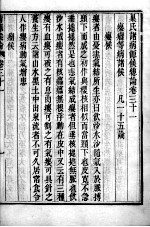 巢氏諸病源候總論卷三十一
癭瘤等病諸候 凡一十五論
癭候
癭者由憂恚氣結所生亦曰飲沙水沙隨氣入於脈搏
頸下而成之初作與櫻核相似而當頸下也皮寬不急垂
搥搥然是也恚氣結成癭者但垂核搥搥無脈也飲
沙水成癭者有核無根浮動在皮中又云有三種
癭有血癭可破之有息肉癭可割之有氣癭可具針之
養生方云諸山水黑土中出泉流者不可久居常食令
人作癭病動氣增患
瘤候